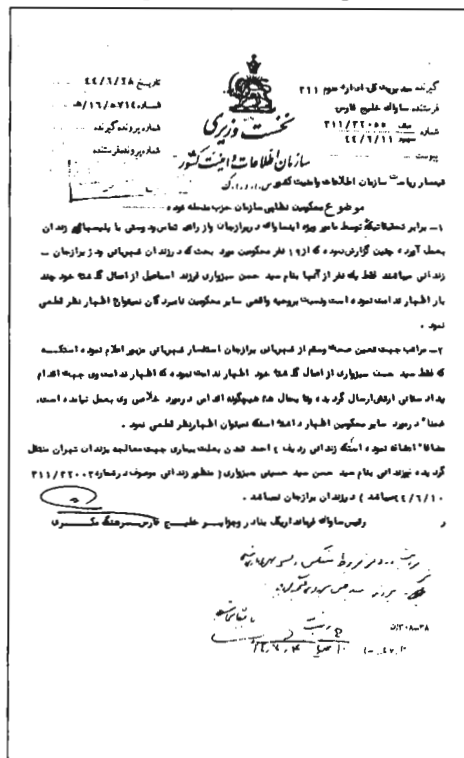 گیرنده مدیریت کل اداره سوم ۳۱۱
تاریخ ۴۴/۶/۲۸
فرستنده ساواک خلیج فارس
شماره ۵۷۱۴/۱۶/ه‍
شماره ۳۱۱/۳۲۰۵۵
۴۴/۶/۱۱
شماره پرونده گیرنده
شماره پرونده فرستنده
پیوست
نخست وزیری
سازمان اطلاعات و امنیت کشور
تیمسار ریاست سازمان اطلاعات و امنیت کشور
موضوع محکومین نظامی سازمان حزب منحله توده
۱- برابر تحقیقاتیکه توسط مامور ویژه اینساواک در برازجان و از راه تماس دوستی با پلیسهای زندان
بعمل آورده چنین گزارش نموده که از ۱۹ نفر محکومین مورد بحث که در زندان شهربانی و دژ برازجان -
زندانی میباشند فقط یک نفر از آنها بنام سید حسن سبزواری فرزند اسماعیل از اعمال گذشته خود چند
بار اظهار ندامت نموده است و نسبت بروحیه واقعی سایر محکومین نامبردگان نمیتوان اظهار نظر قطعی
نمود .
۲- مراتب جهت تعیین صحت و سقم از شهربانی برازجان استفسار شهربانی مزبور اعلام نموده استکه
که فقط سید حسن سبزواری از اعمال گذشته خود اظهار ندامت نموده که اظهار ندامت وی جهت اقدام
بدادستانی ارتش ارسال گردیده و تا بحال هم هیچگونه اقدامی در مورد خلاصی وی بعمل نیامده است.
ضمنا" در مورد سایر محکومین اظهار داشته استکه نمیتوان اظهار نظر قطعی نمود .
مضافا" اضافه نموده استکه زندانی ردیف ۶ احمد تمدن بعلت بیماری جهت معالجه بزندان تهران منتقل
گردیده نیز زندانی بنام سید حسن سید حسینی سبزواری ( منظور زندانی موصوف در شماره ۳۱۱/۳۲۰۰۲
۴۴/۶/۱۰ میباشد ) در زندان برازجان نمیباشد .
رئیس ساواک فرمانداریکل بنادر و جزایر خلیج فارس سرهنگ مکری